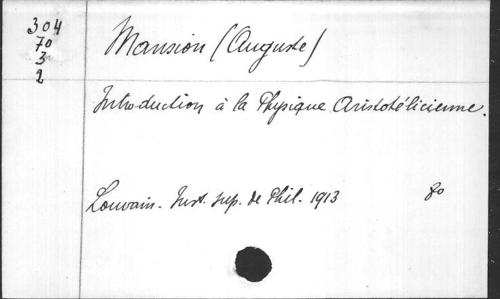 304
70
3
2
Mansion (Auguste)
Introduction à la Physique Aristotélicienne.
Louvain. Inst. sup. de Phil. 1913 8o